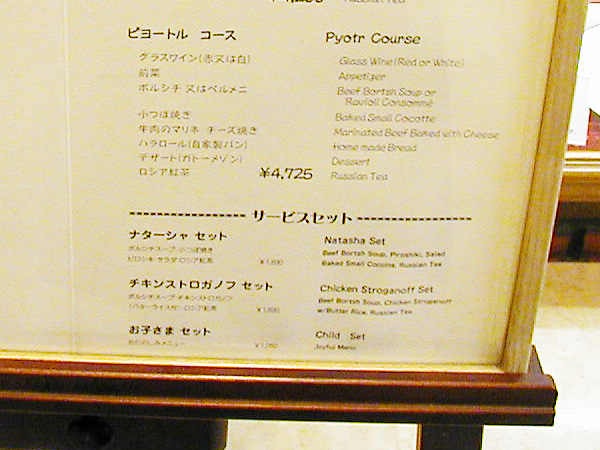 Russian Tea
ピョートル コース
Pyotr Course
グラスワイン(赤又は白)
Glass Wine (Red or White)
前菜
Appetizer
ボルシチ 又はペルメニ
Beef Bortsh Soup or
Ravioli Consommé
小つぼ焼き
Baked Small Cocotte
牛肉のマリネ チーズ焼き
Marinated Beef Baked with Cheese
ハラロール(自家製パン)
Home made Bread
デザート(ガトーメゾン)
Dessert
ロシア紅茶
¥4,725
Russian Tea
サービスセット
ナターシャ セット
Natasha Set
ボルシチスープ 小つぼ焼き
Beef Bortsh Soup, Piroshiki, Salad
ピロシキ サラダ ロシア紅茶
¥1,890
Baked Small Cocotte, Russian Tea
チキンストロガノフ セット
Chicken Stroganoff Set
ボルシチスープ チキンストロガノフ
Beef Bortsh Soup, Chicken Stroganoff
(バターライス付) ロシア紅茶
¥1,890
w/Butter Rice, Russian Tea
お子さま セット
Child Set
おたのしみメニュー
Joyful Menu